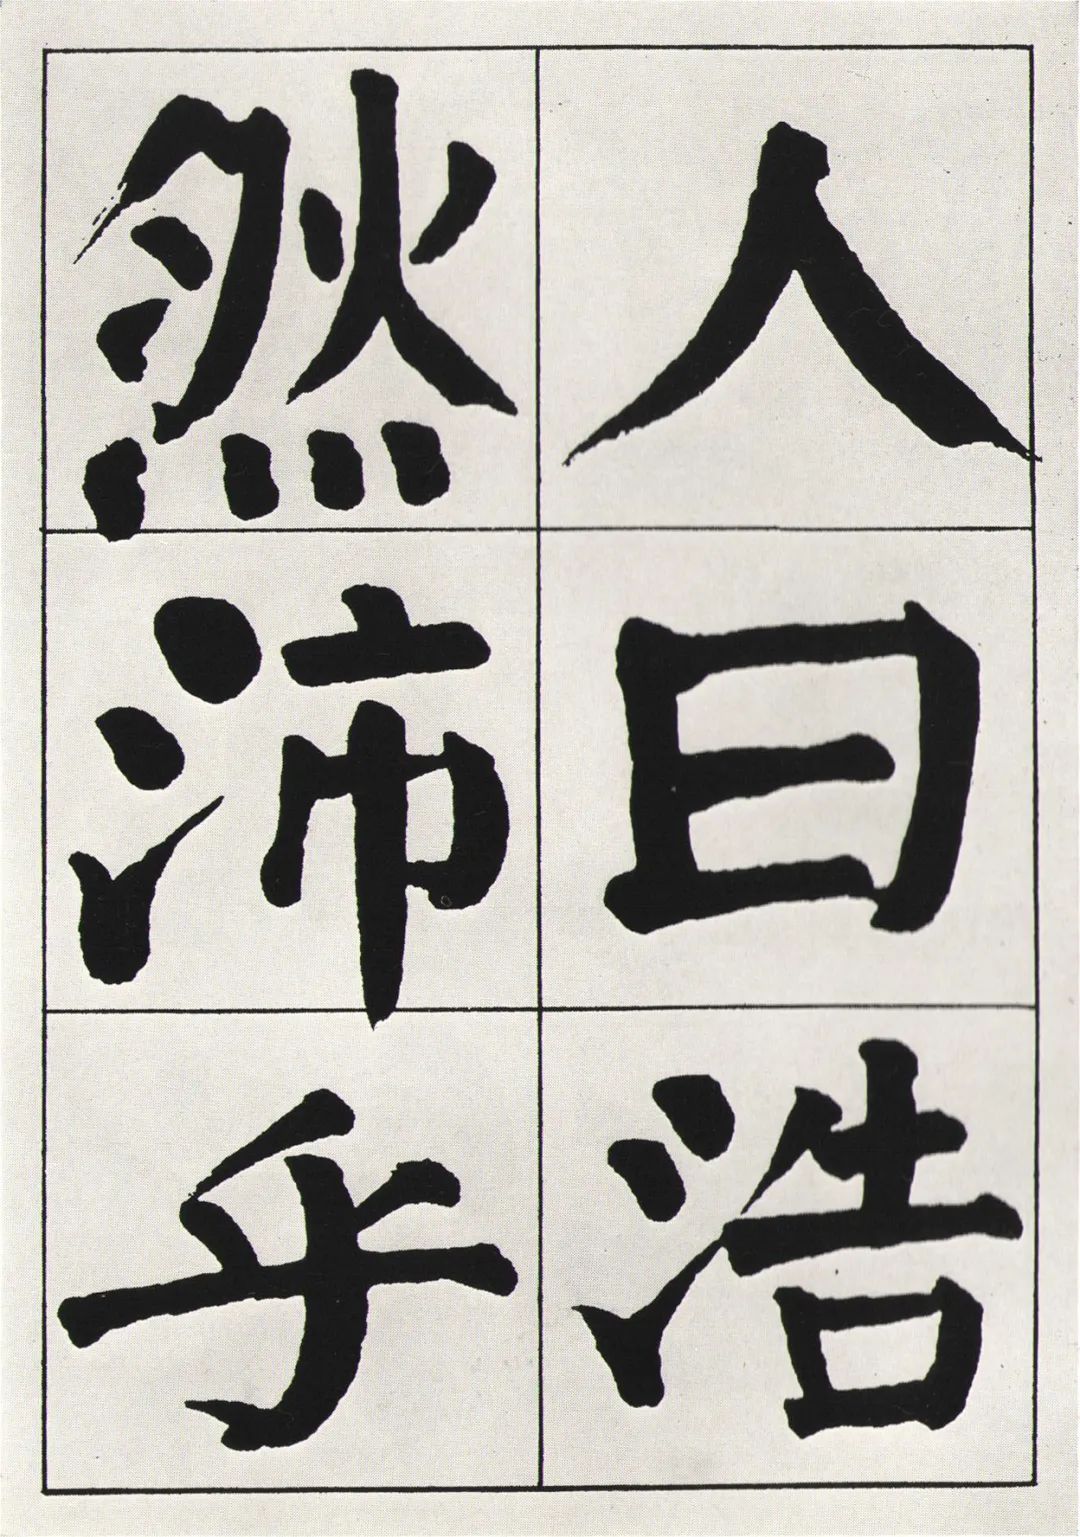 人曰浩
然沛乎